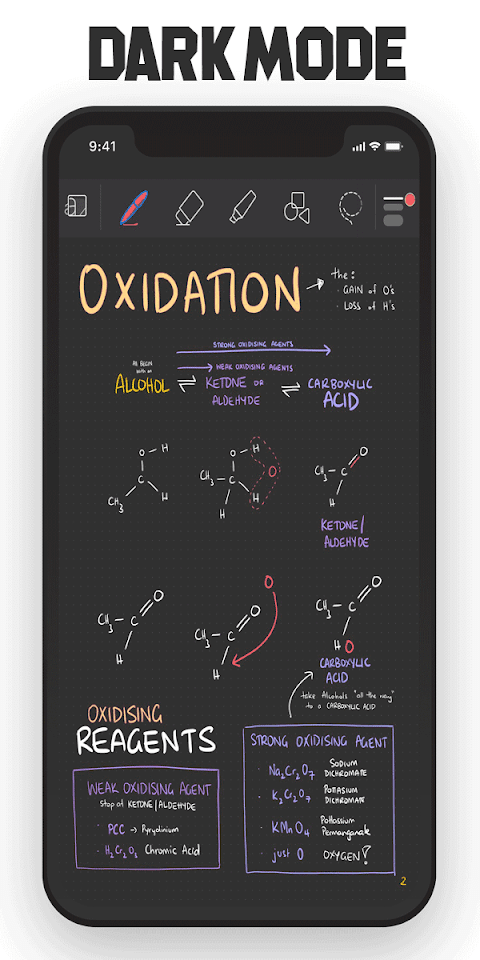 DARK MODE
9:41
OXIDATION
the:
· GAIN of O's
· LOSS of H's
STRONG OXIDISING AGENTS
WEAK OXIDISING AGENTS
AS BEGIN
with an
ALCOHOL ⇌ KETONE OR ALDEHYDE ⇌ CARBOXYLIC ACID
O – H
CH3 – C
H
O – H
CH3 – C
O
H
H
O
CH3 – C
H
KETONE/
ALDEHYDE
O
CH3 – C
H
O
O
CH3 – C
H
O
CH3 – C
H O
CARBOXYLIC
ACID
take Alcohols "all the way"
to a CARBOXYLIC ACID
OXIDISING
REAGENTS
WEAK OXIDISING AGENT
Stop at KETONE/ALDEHYDE
· PCC → Pyrydinium
· H2Cr2O3 Chromic Acid
STRONG OXIDISING AGENT
· Na2Cr2O7 SODIUM DICHROMATE
· K2Cr2O7 POTASIUM DICHROMATE
· KMnO4 Pottassium Permanganate
· just O OXYGEN!
2